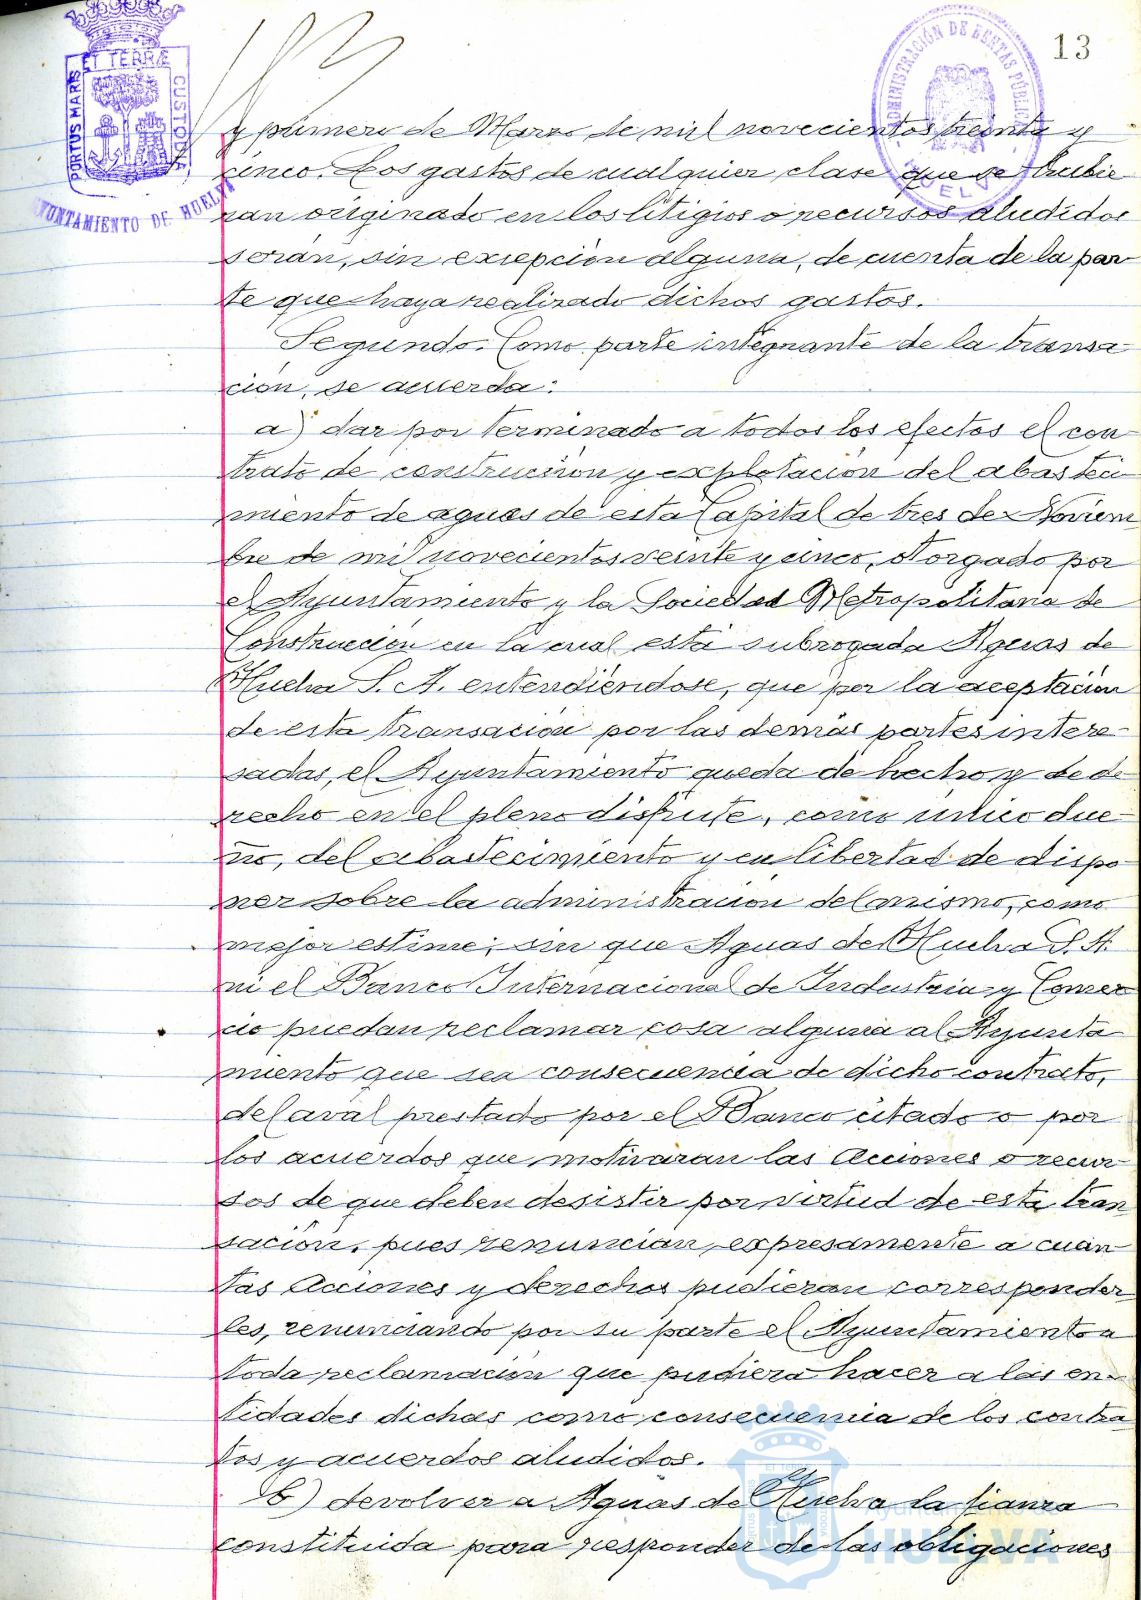 PORTUS MARIS ET TERRÆ CUSTODIA
AYUNTAMIENTO DE HUELVA
ADMINISTRACIÓN DE RENTAS PÚBLICAS
HUELVA
13
y primero de Marzo de mil novecientos treinta y
cinco. Los gastos de cualquier clase que se hubie-
ran originado en los litigios o recursos aludidos
serán, sin excepción alguna, de cuenta de la par-
te que haya realizado dichos gastos.
Segundo. Como parte integrante de la transa-
ción, se acuerda:
a) dar por terminado a todos los efectos el con-
trato de construcción y explotación del abasteci-
miento de aguas de esta Capital de tres de Noviem-
bre de mil novecientos veinte y cinco, otorgado por
el Ayuntamiento y la Sociedad Metropolitana de
Construcción en la cual está subrogada Aguas de
Huelva S. A. entendiéndose, que por la aceptación
de esta transación por las demás partes intere-
sadas, el Ayuntamiento queda de hecho y de de-
recho en el pleno disfrute, como único due-
ño, del abastecimiento y en libertad de dispo-
ner sobre la administración del mismo, como
mejor estime; sin que Aguas de Huelva S. A.
ni el Banco Internacional de Industria y Comer-
cio puedan reclamar cosa alguna al Ayunta-
miento que sea consecuencia de dicho contrato,
del aval prestado por el Banco citado o por
los acuerdos que motivaran las Acciones o recur-
sos de que deben desistir por virtud de esta tran-
sación, pues renuncian, expresamente a cuan-
tas Acciones y derechos pudieran corresponder-
les, renunciando por su parte el Ayuntamiento a
toda reclamación que pudiera hacer a las en-
tidades dichas como consecuencia de los contra-
tos y acuerdos aludidos.
b) devolver a Aguas de Huelva la fianza
constituida para responder de las obligaciones
Ayuntamiento de
HUELVA